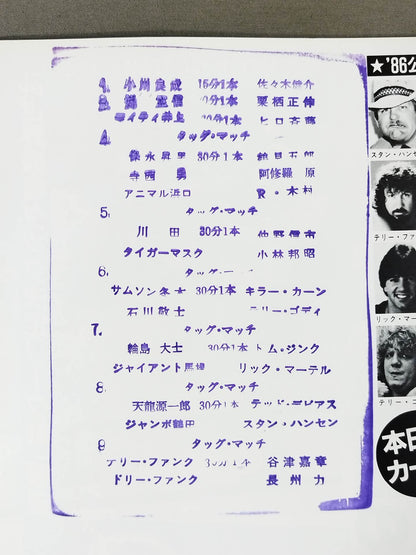 1. 小川良成 15分1本 佐々木健介
2. 0分1本 栗栖正伸
マイティ井上 分1本 ヒロ斉藤
4. タッグ・マッチ
保永昇男 30分1本 鶴見五郎
寺西 勇 阿修羅 原
アニマル浜口 R・木村
5. タッグ・マッチ
川田 30分1本 仲野信市
タイガーマスク 小林邦昭
6. タッグ・
サムソン冬木 30分1本 キラー・カーン
石川敬士 テリー・ゴディ
7. タッグ・マッチ
輪島 大士 30分1本 トム・ジンク
ジャイアント馬場 リック・マーテル
8. タッグ・マッチ
天龍源一郎 30分1本 テッド・デビアス
ジャンボ鶴田 スタン・ハンセン
9 タッグ・マッチ
テリー・ファンク 30分1本 谷津嘉章
ドリー・ファンク 長州 力
★'86公
スタン・ハンセ
テリー・ファ
リック・マー
テリー・ゴ
本日
カー